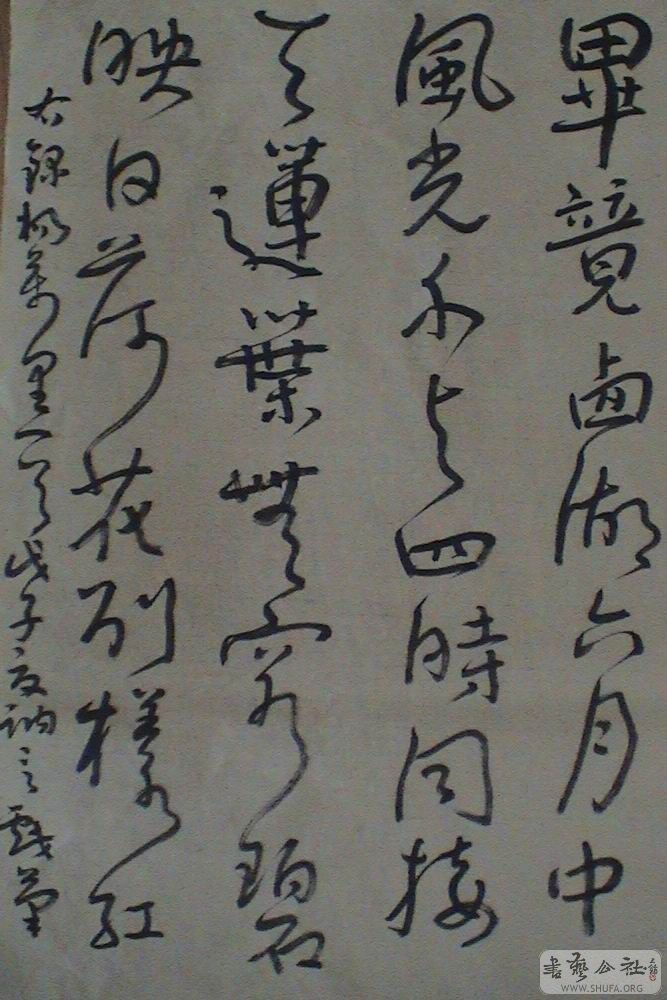 畢竟西湖六月中
風光不与四時同接
天蓮葉無窮碧
映日荷花別樣紅
右録楊萬里一首戊子夏訥言戲筆
書藝公社
WWW.SHUFA.ORG